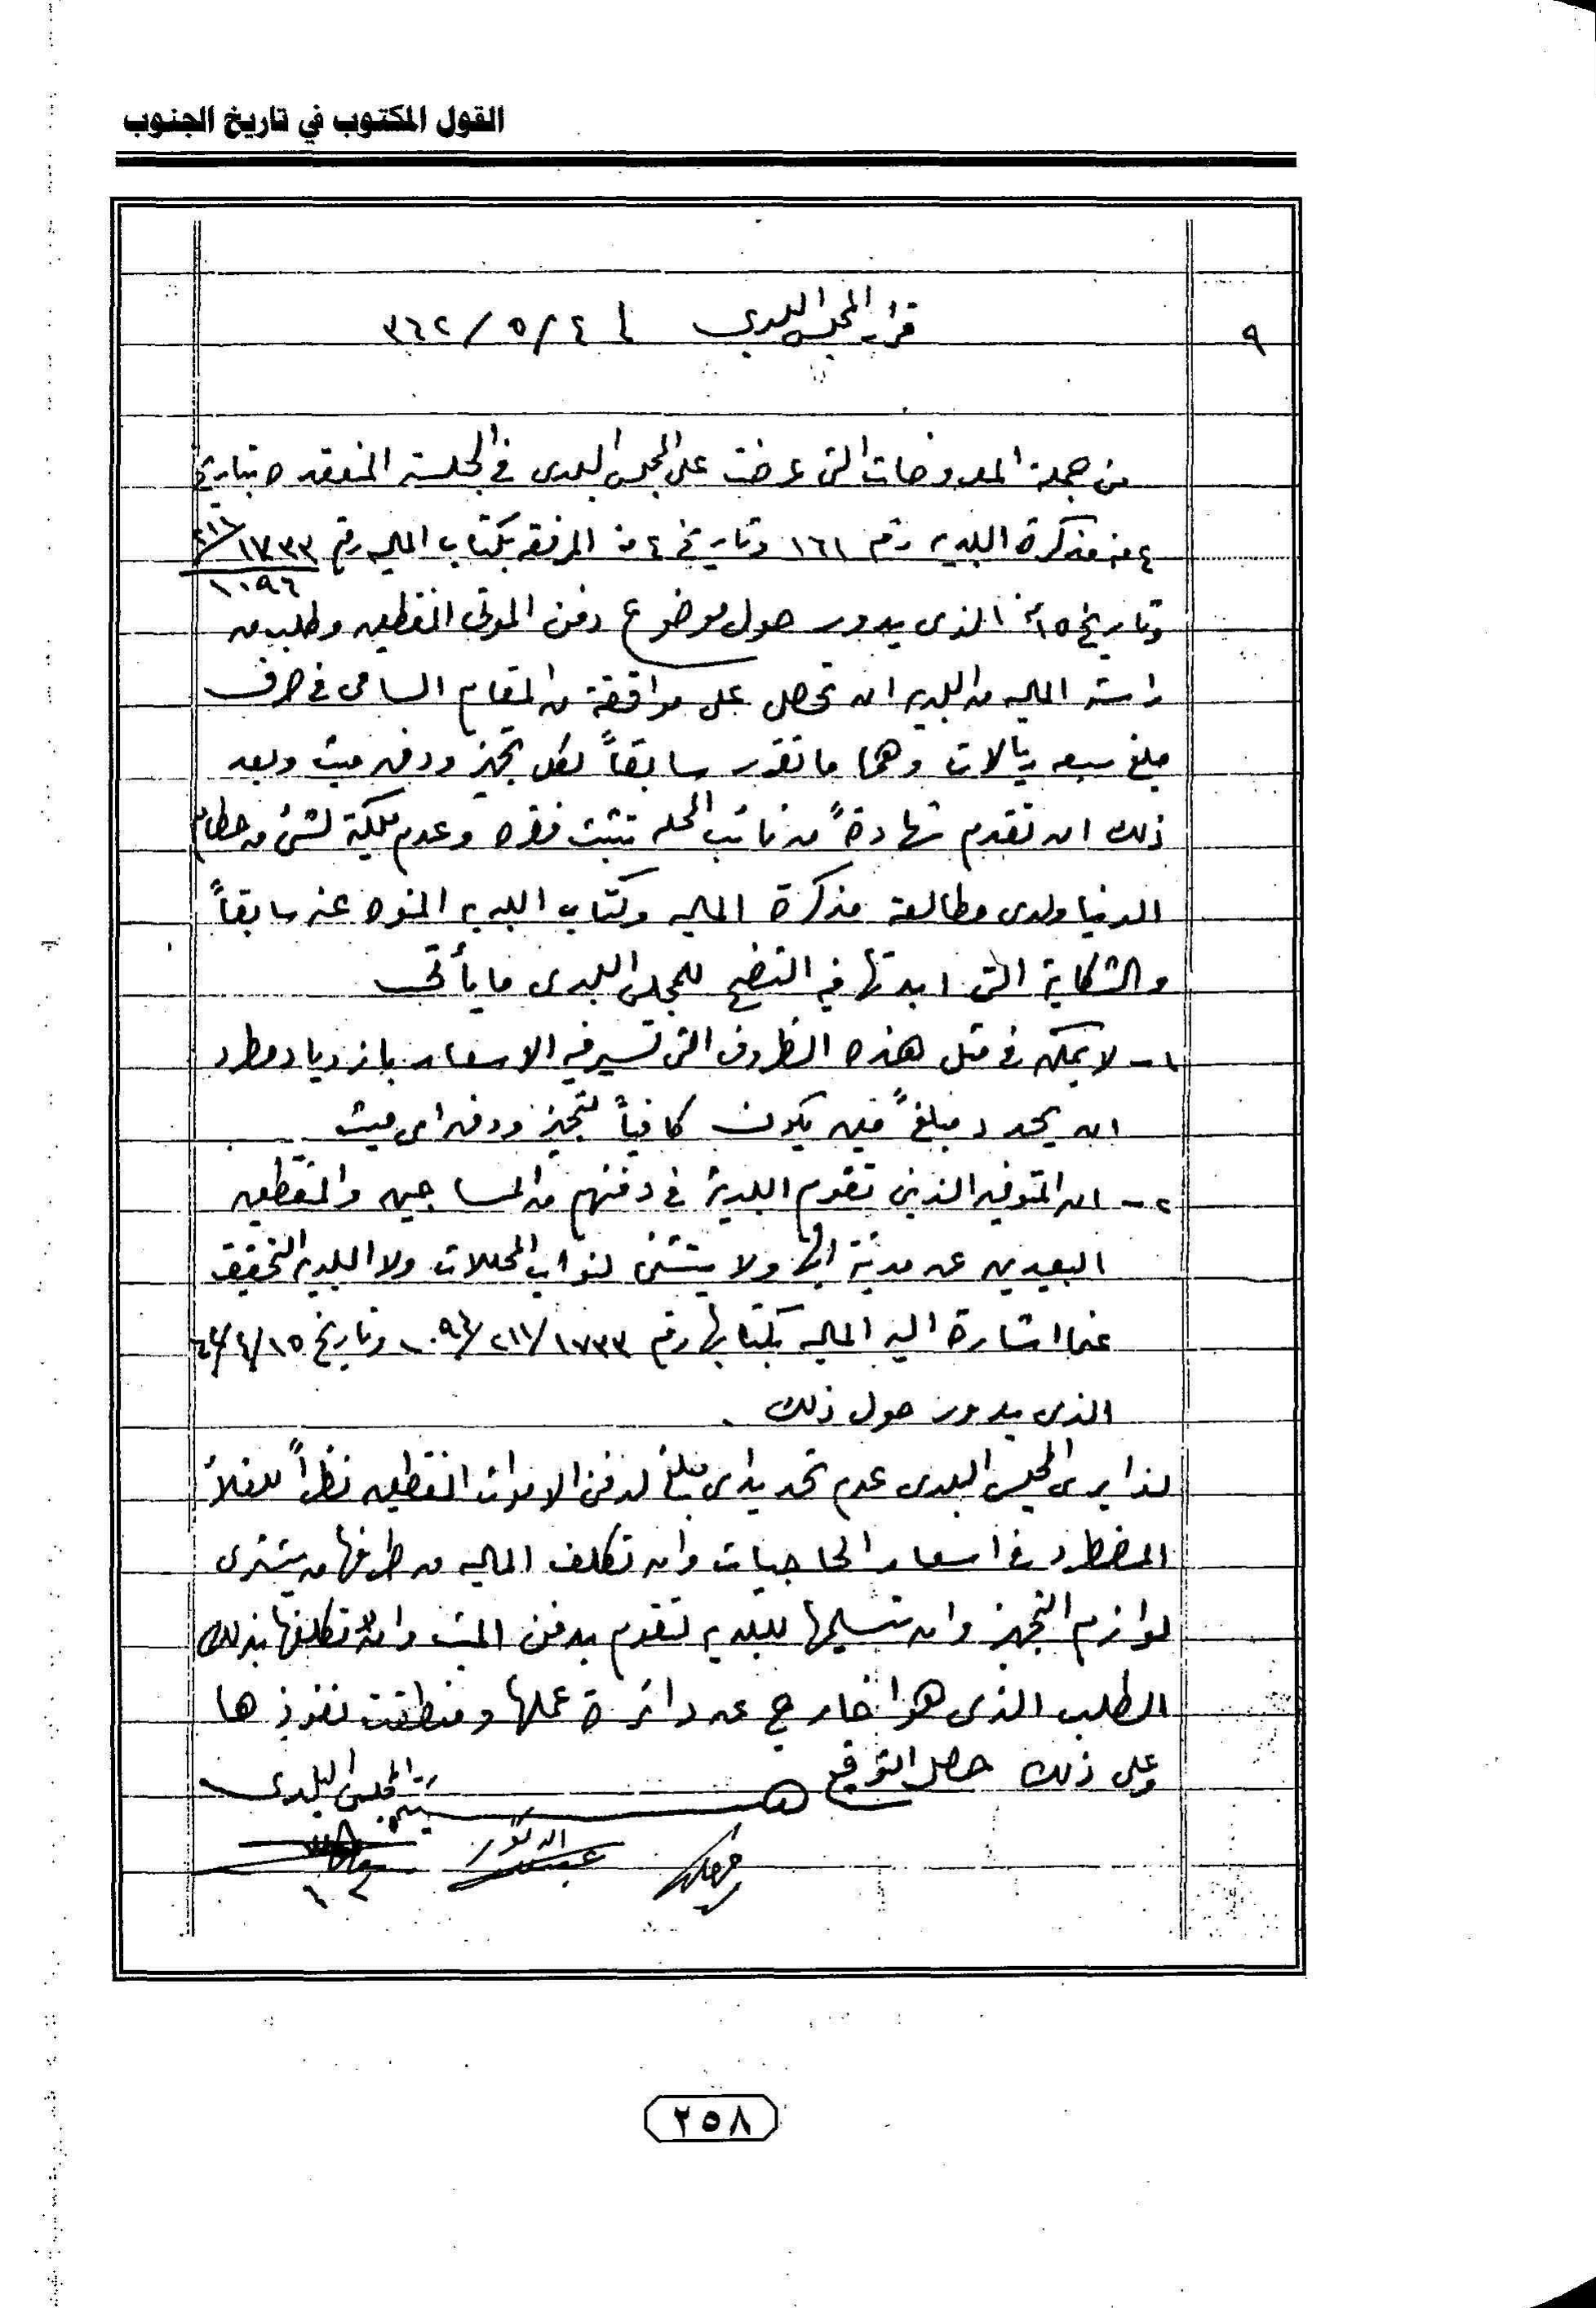 القول المكتوب في تاريخ الجنوب
٩
قرار المجلس البلدي ٤/٥/٣٦٢
من جملة المعروضات التى عرضت على المجلس البلدى في الجلسة المنعقده بتاريخ
٤ منه مذكرة البلديه رقم ١٦١ وتاريخ ٤ منه المرفقه بكتاب الماليه رقم ١٧٣٣/٢١١
١٠٩٦
وتاريخ ١٥ الذى يدور حول موضوع دفن الموتى المنقطعين وطلب من
الماليه من البلديه ان تحصل على موافقة من المقام السامى في صرف
مبلغ سبعه ريالات وهما ما تقرر سابقاً لكل تجهيز ودفن ميت وبعد
ذلك ان تقدم شهادةً من نائب المحله تثبت فقره وعدم ملكية لشئ من حطام
الدنيا ولدى مطالعة مذكرة الماليه وكتاب البلديه المنوه عنه سابقاً
والشكاية التى ابدتها فيه اتضح للمجلس البلدى ما يأتى
١- لا يمكن في مثل هذه الظروف التى تسير فيه الاسعار بازدياد مطرد
ان يحدد مبلغاً معين يكون كافياً لتجهيز ودفن اى ميت
٢- ان المتوفين الذين تقوم البلدية في دفنهم من المساجين والمنقطعين
البعيدين عن مدينة ابها ولا يتسنى لنواب المحلات ولا البلديه التحقيق
عما اشارة اليه الماليه بكتابها رقم ١٧٣٣/٢١١/١٠٩٦ وتاريخ ١٥/٤/٦٢
الذى يدور حول ذلك .
لذا يرى المجلس البلدى عدم تحديد اى مبلغ لدفن الاموات المنقطعين نظراً للغلاء
المضطرد في اسعار الحاجيات وان تكلف الماليه من طرفها من يشترى
لوازم التجهيز وان تسليمها للبلديه لتقوم بدفن الميت وان لا تكلفها بذلك
الطلب الذى هو خارج عن دائرة عملها ومنطقت نفوذها
وعلى ذلك حصل التوقيع
المجلس البلدى
الدكتور
٢٥٨